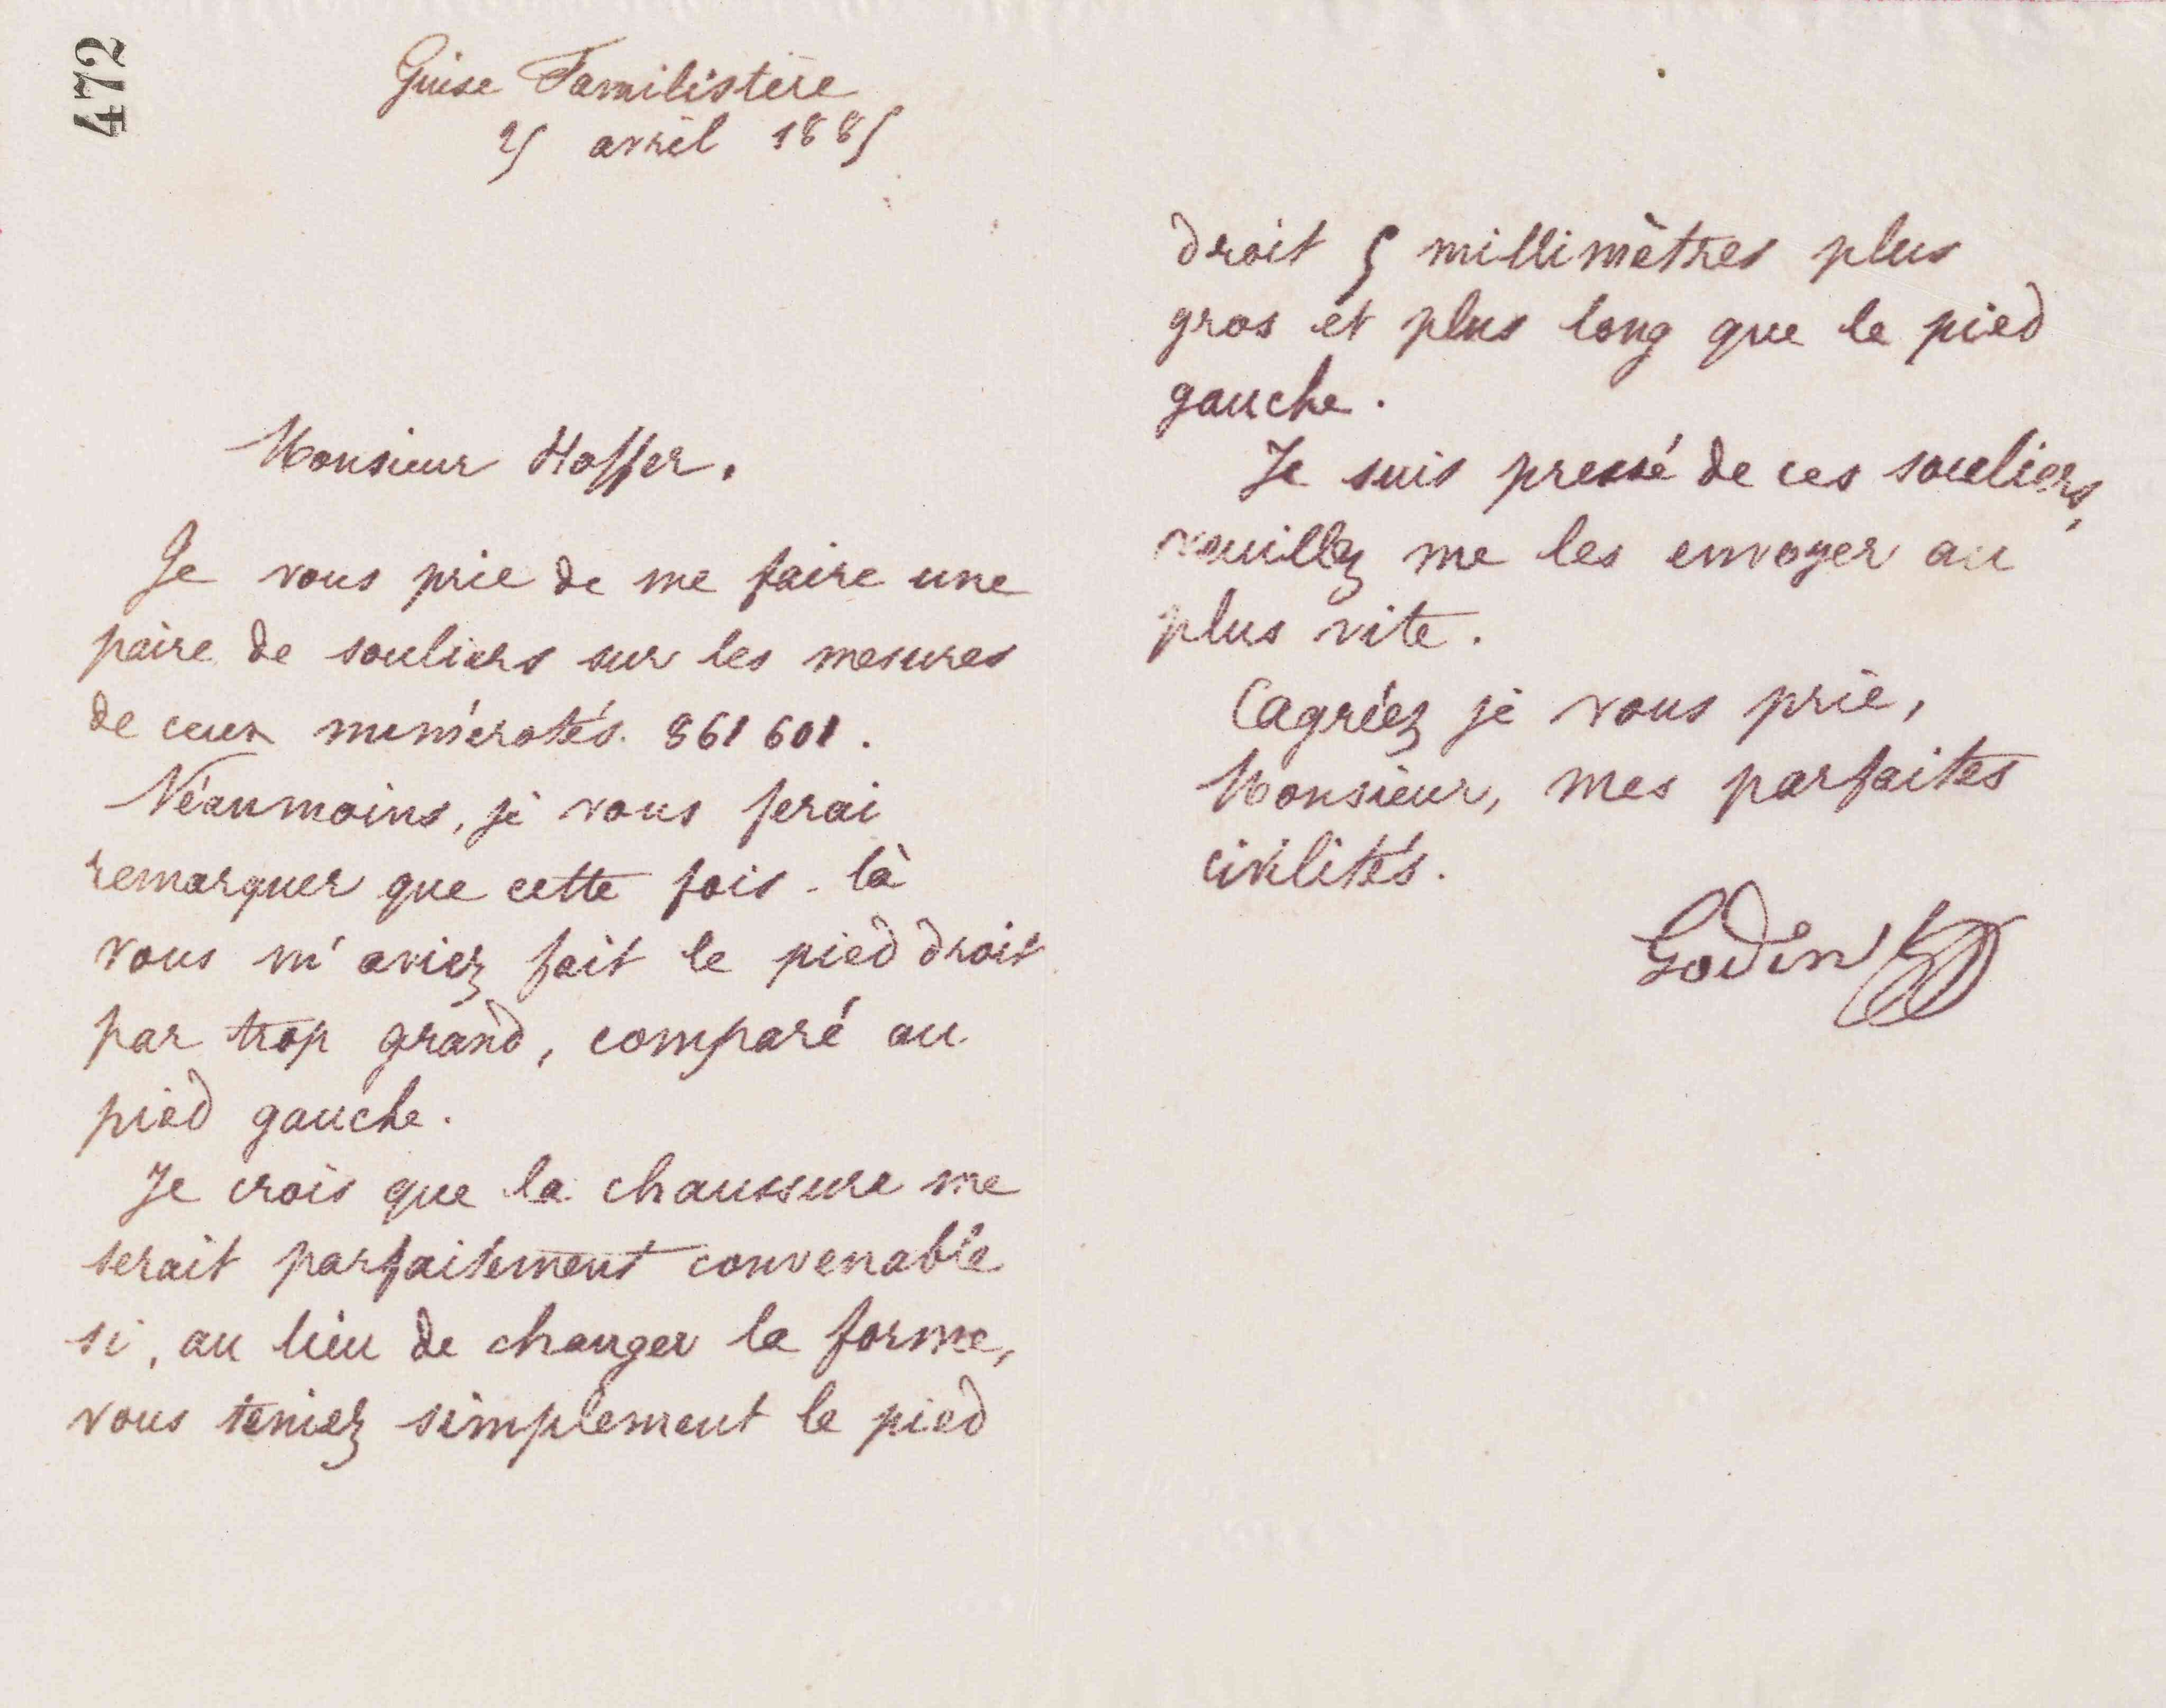 472
Guise Familistère
25 avril 1885
Monsieur Hoffer.
Je vous prie de me faire une
paire de souliers sur les mesures
de ceux numérotés. 861 601.
Néanmoins, je vous ferai
remarquer que cette fois-là
vous m'aviez fait le pied droit
par trop grand, comparé au
pied gauche.
Je crois que la chaussure me
serait parfaitement convenable
si, au lieu de changer la forme,
vous teniez simplement le pied
droit 5 millimètres plus
gros et plus long que le pied
gauche.
Je suis pressé de ces souliers,
veuillez me les envoyer au
plus vite.
agréez je vous prie,
Monsieur, mes parfaites
civilités.
Godin